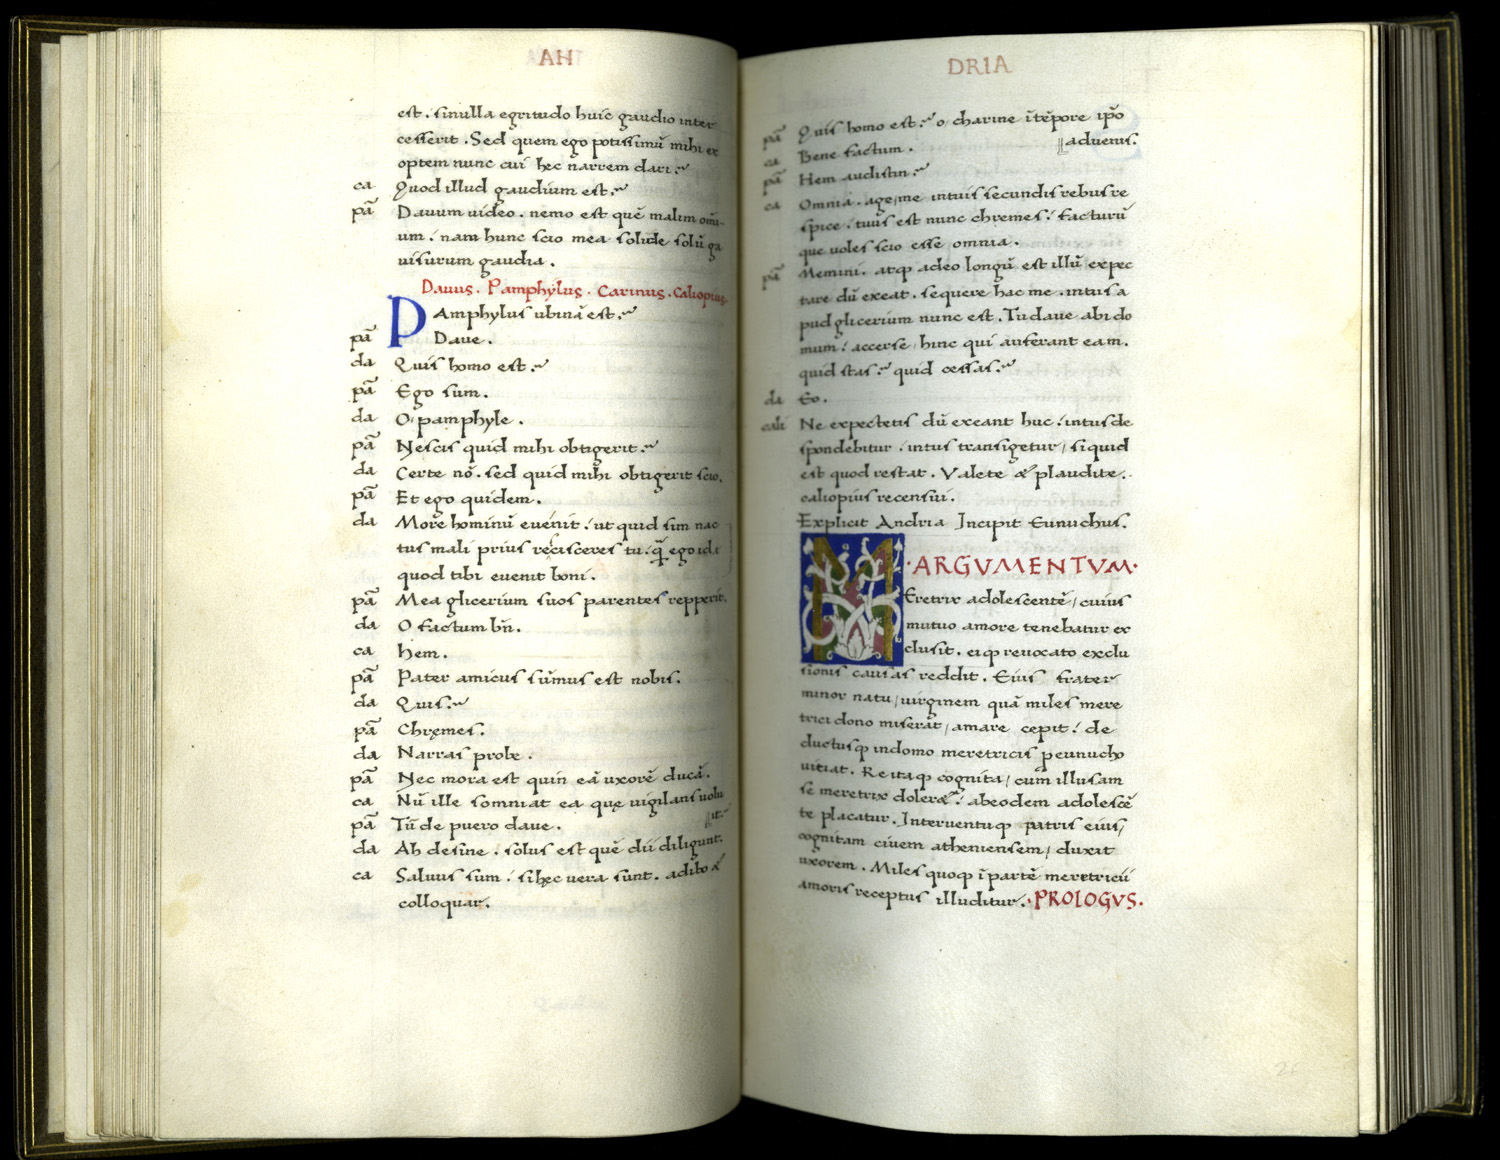 AN
est. sinulla egritudo huic gaudio inter
cesserit. Sed quem ego potissimũ mihi ex
optem nunc cui hec narrem dari:~
ca Quod illud gaudium est:~
pã Dauum uideo. nemo est quẽ malim om̃i-
um: nam hunc scio mea solide solũ ga
uisurum gaudia.
Dauus. Pamphylus. Carinus. Caliopius.
PAmphylus ubinã est:~
pã Daue.
da Quis homo est:~
pã Ego sum.
da O/pamphyle.
pã Nescis quid mihi obtigerit:~
da Certe nõ. sed quid mihi obtigerit scio.
pã Et ego quidem.
da More hominũ euenit: ut quid sim nac
tus mali prius rescisceres tu: q̃ ego id
quod tibi euenit boni.
pã Mea glicerium suos parentes repperit.
da O factum bñ.
ca hem.
pã Pater amicus sũmus est nobis.
da Quis:~
pã Chręmes.
da Narras probe.
pã Nec mora est quin eã uxorẽ ducã.
ca Nũ ille somniat ea quę uigilans uolu
it:~
pã Tũ de puero daue.
da Ah desine. solus est quẽ dii diligunt.
ca Saluus sum: si hęc uera sunt. adibo &
colloquar.
DRIA
pã Quis homo est:~ o/ charine ĩ tẽpore ip̃o
aduenis.
ca Bene factum.
pã Hem audistin:~
ca Omnia. age/me intuis secundis rebus re
spice: tuus est nunc chremes: facturũ
que uoles scio esse omnia.
pã Memini. atqꝫ adeo longũ est illũ expec
tare dũ exeat. sequere hac me. intus a
pud glicerium nunc est. Tu daue abi do
mum: accerse/ hinc qui auferant eam.
quid stas:~ quid cessas:~
da Eo.
cali Ne expectetis dũ exeant huc: intus de
spondebitur: intus transigetur/ siquid
est quod restat. Valete & plaudite.
caliopius recensui.
Explicit Andria Incipit Eunuchus.
·ARGVMENTVM·
MEretrix adolescentẽ/ cuius
mutuo amore tenebatur ex
clusit. eiqꝫ reuocato exclu
sionis causas reddit. Eius frater
minor natu/ uirginem quã miles mere
trici dono miserat/ amare cepit: de
ductusqꝫ indomo meretricis peunucho
uitiat. Re itaqꝫ cognita/ cum illusam
se meretrix doleret: abeodem adolescẽ
te placatur. Interuentuqꝫ patris eius/
cognitam ciuem atheniensem/ duxit
uxorem. Miles quoqꝫ ĩ partẽ meretricii
amoris receptus illuditur.·PROLOGVS.